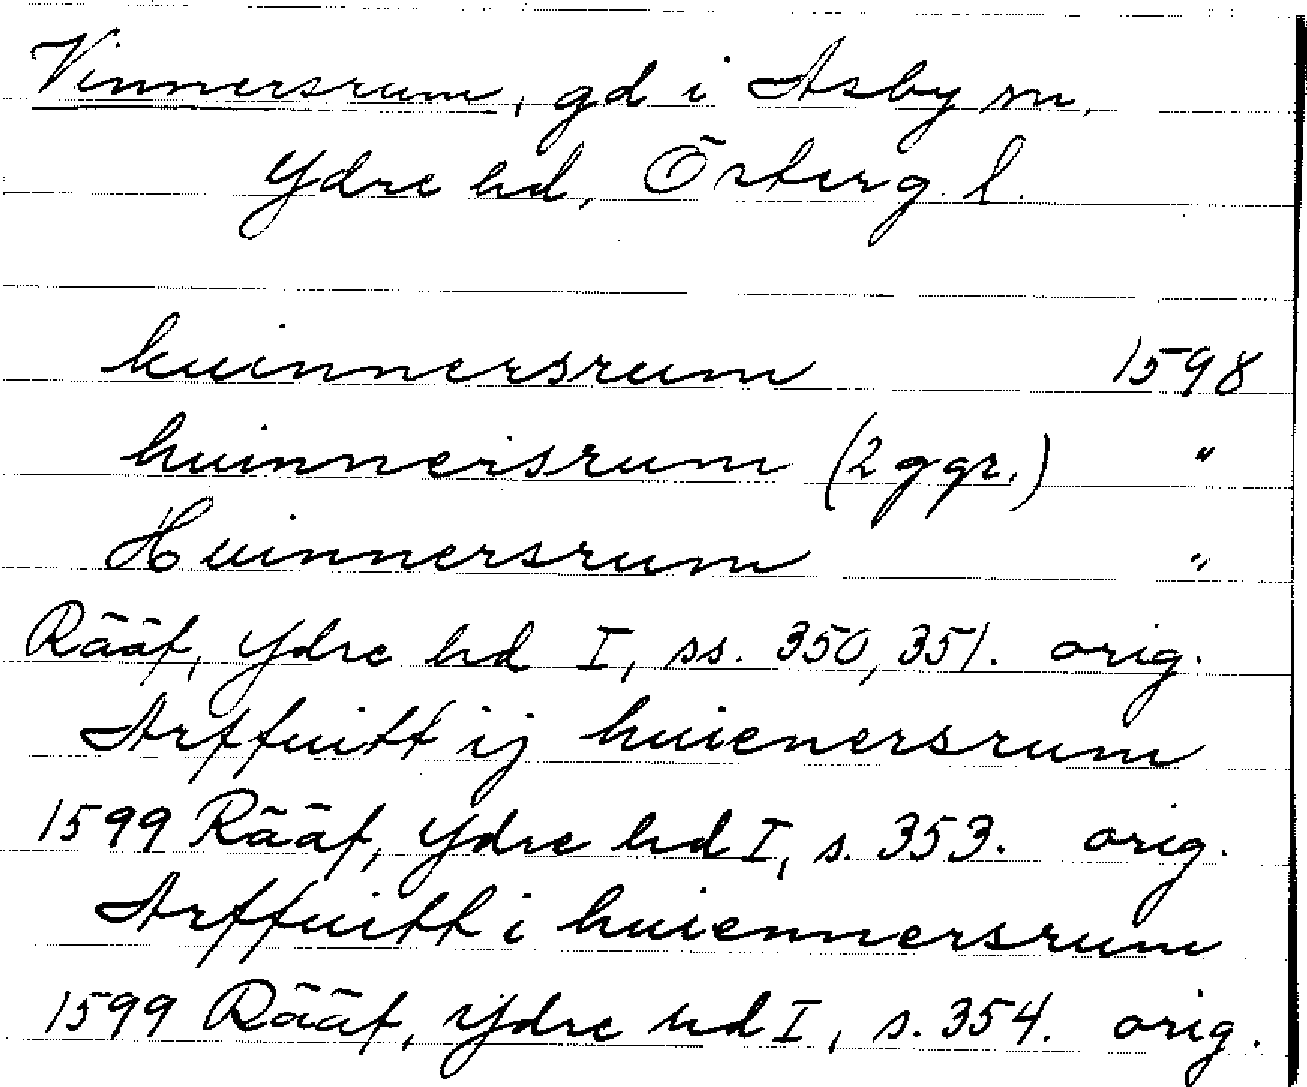 Vinnersrum, gd i Asby sn,
Ydre hd, Österg. l.
huinnersrum 1598
huinneisrum (2 ggr.) "
Huinnersrum "
Rääf, Ydre hd I, ss. 350, 351. orig.
Arffuitt ij huienersrum
1599 Rääf, Ydre hd I, s. 353. orig.
Arffuitt i huiennersrum
1599 Rääf, Ydre hd I, s. 354. orig.